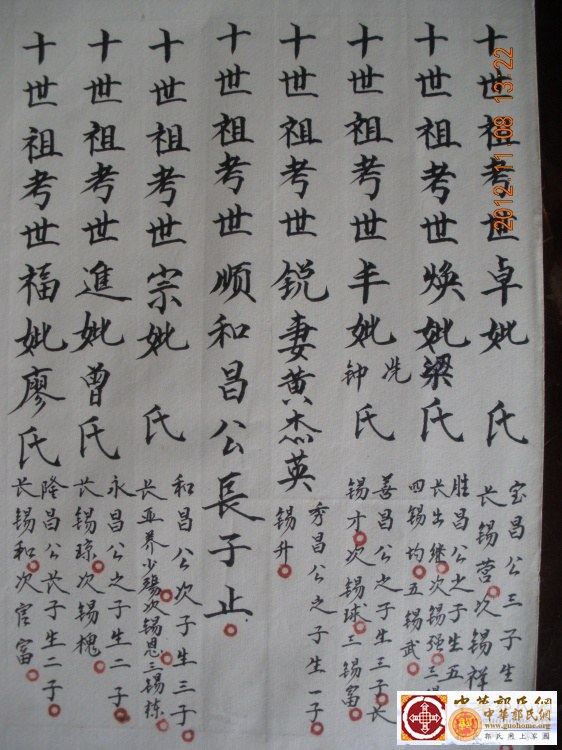 十世祖考世卓妣 氏
宝昌公三子生
长锡营次锡祥
十世祖考世焕妣梁氏
胜昌公之子生五
长出继次锡强三
四锡均五锡武
十世祖考世丰妣冼钟氏
善昌公之子生三子长
锡才次锡球三锡富
十世祖考世锐妻黄杰英
秀昌公之子生一子
锡升
十世祖考世顺和昌公長子止
十世祖考世宗妣 氏
和昌公次子生三子
长亚养少殇次锡恩三锡栋
十世祖考世進妣曾氏
永昌公之子生二子
长锡琼次锡槐
十世祖考世福妣廖氏
隆昌公长子生二子
长锡和次官富
2012 11 08 13 22
中華郭氏網
中華郭氏網
www.guohome.org
郭氏网上家園